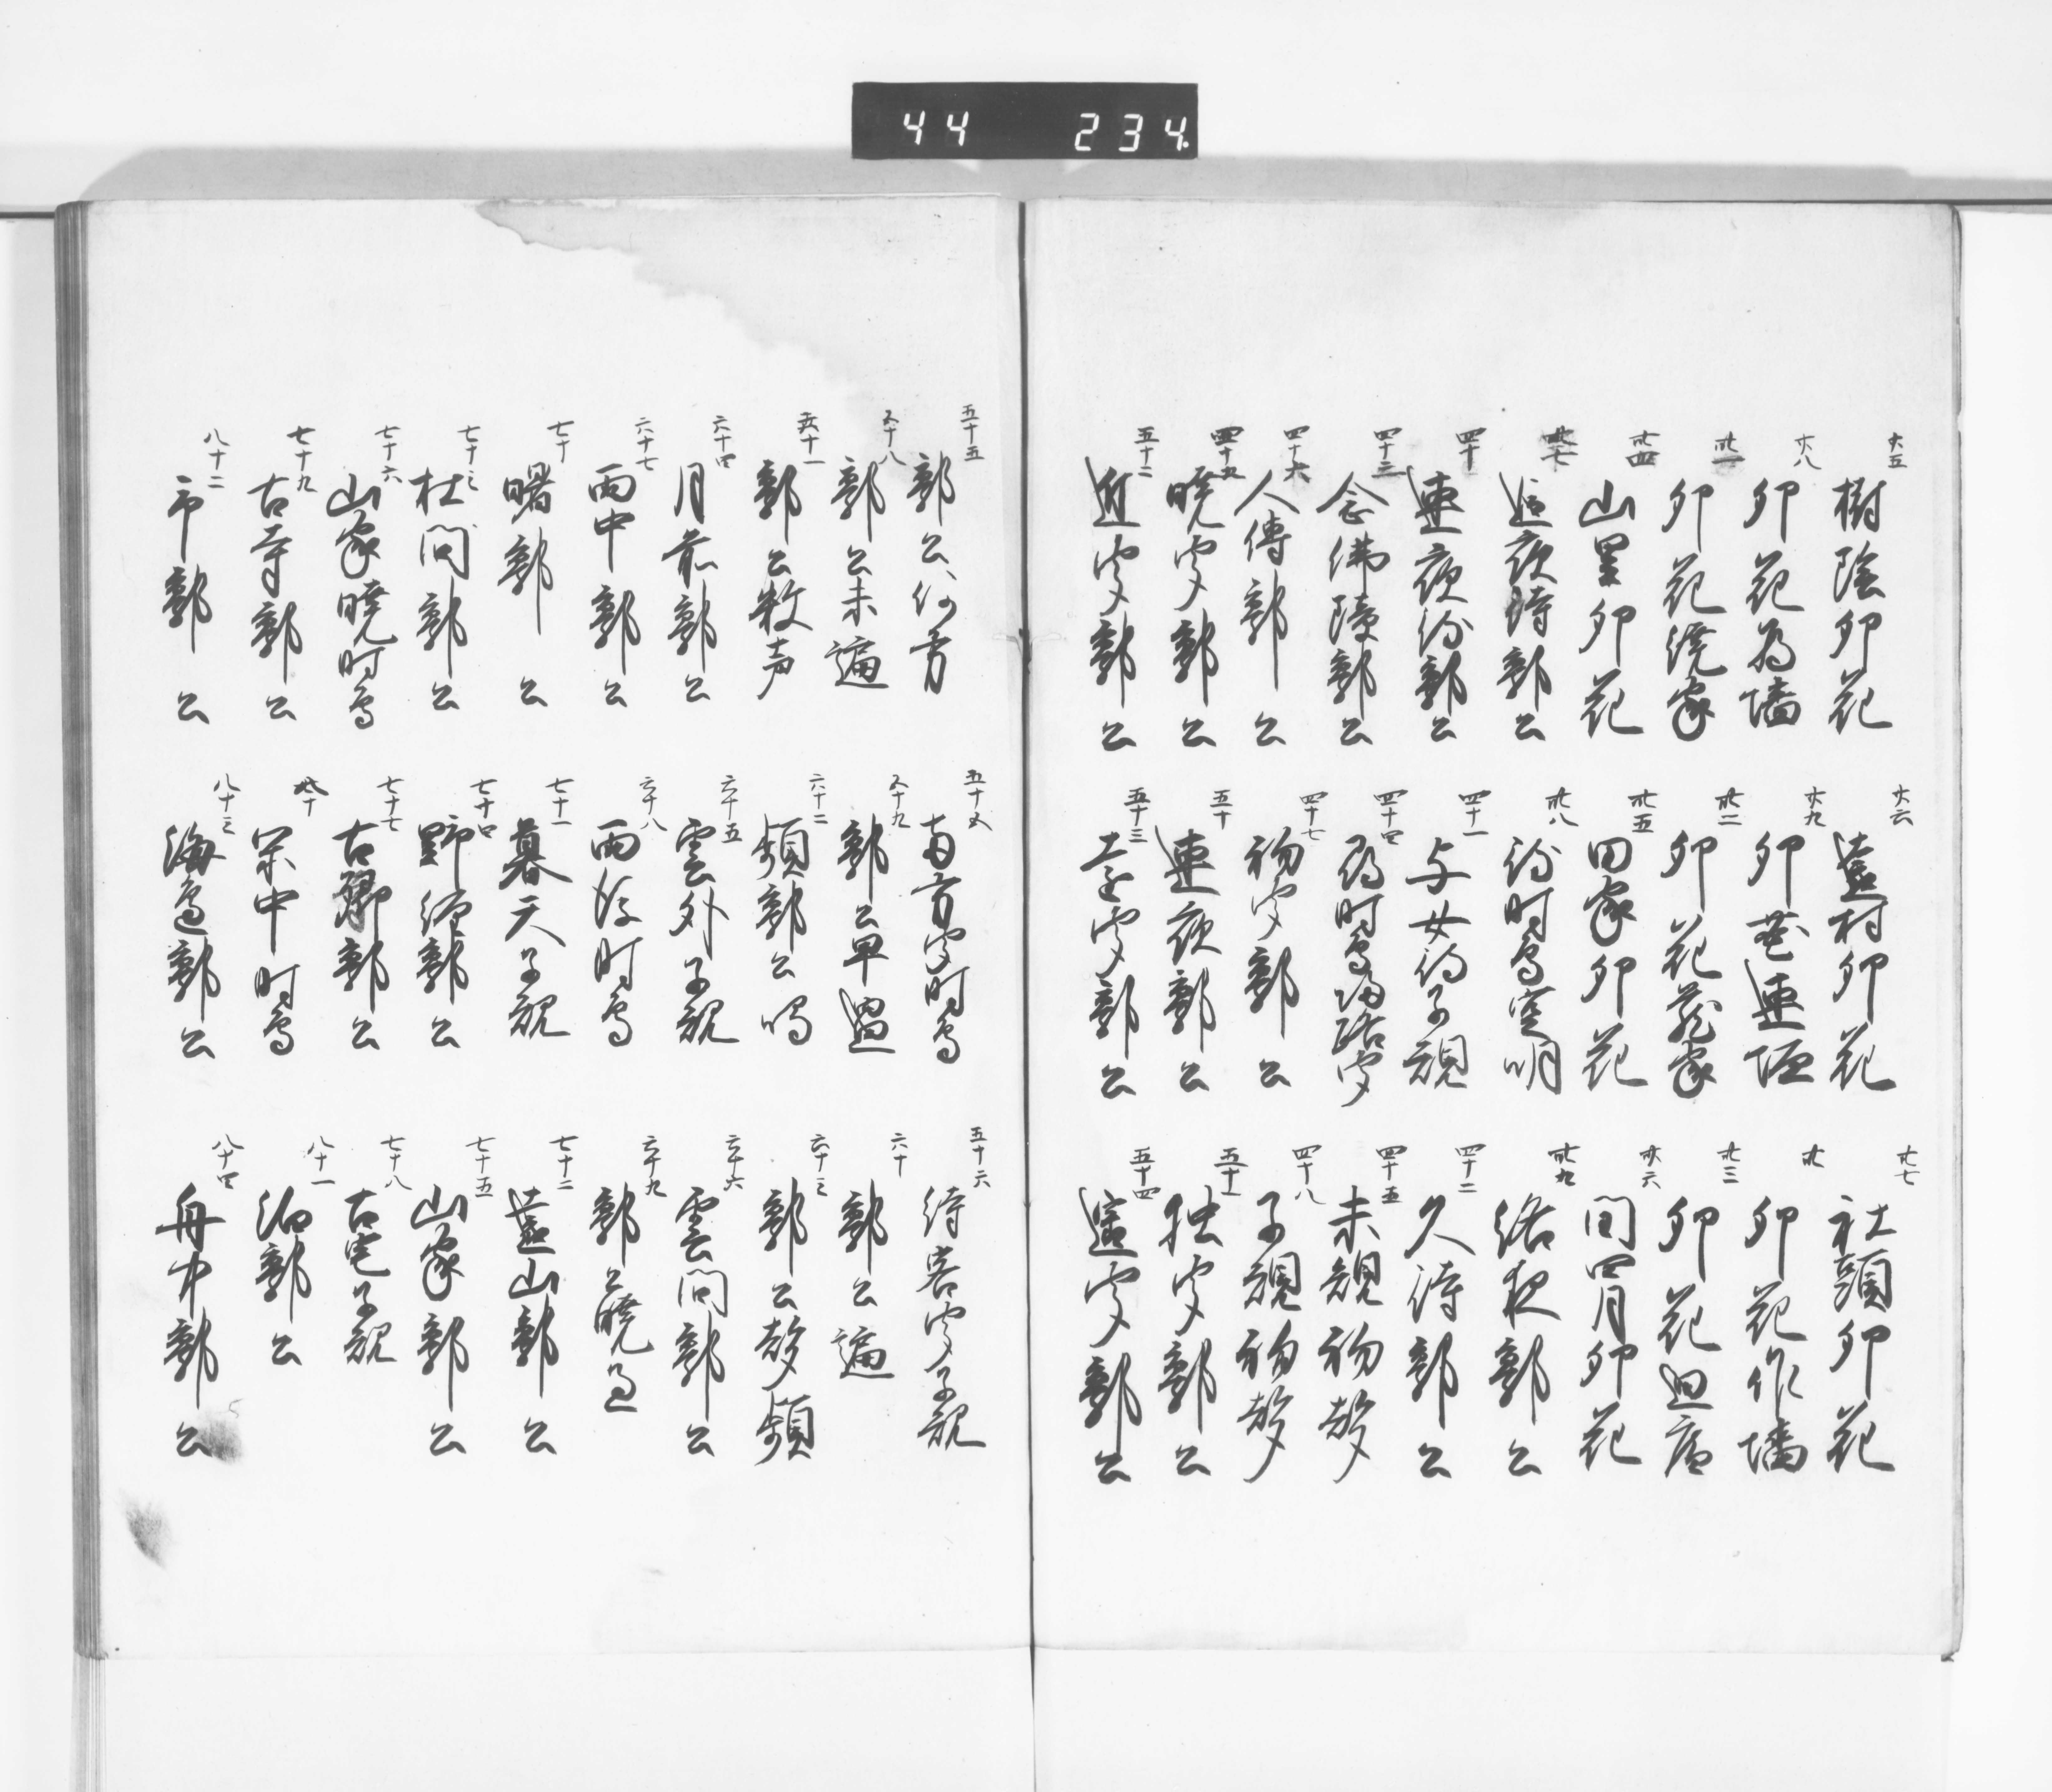 44 234
廿五 樹陰卯花
廿六 遠村卯花
廿七 社頭卯花
廿八 卯花為墻
廿九 卯花連垣
卅 卯花作墻
卅一 卯花繞家
卅二 卯花蔵家
卅三 卯花廻庭
卅四 山里卯花
卅五 田家卯花
卅六 閏四月卯花
卅七 逐夜待郭公
卅八 待時鳥空明
卅九 終夜郭公
四十 連夜待郭公
四十一 与女待子規
四十二 久待郭公
四十三 念佛隙郭公
四十四 尋時鳥帰路聞
四十五 未覩初聲
四十六 人傳郭公
四十七 初聞郭公
四十八 子規初聲
四十九 暁聞郭公
五十 連夜郭公
五十一 独聞郭公
五十二 近聞郭公
五十三 遠聞郭公
五十四 遥聞郭公
五十五 郭公何方
五十 両方聞時鳥
五十六 待客聞子規
五十八 郭公未遍
五十九 郭公早過
六十 郭公遍
六十一 郭公数声
六十二 頻郭公鳴
六十三 郭公聲頻
六十四 月前郭公
六十五 雲外子規
六十六 雲間郭公
六十七 雨中郭公
六十八 雨後時鳥
六十九 郭公暁過
七十 曙郭公
七十一 暮天子規
七十二 遠山郭公
七十三 杜間郭公
七十四 野径郭公
七十五 山家郭公
七十六 山家暁時鳥
七十七 古郷郭公
七十八 古宅子規
七十九 古寺郭公
八十 関中時鳥
八十一 泊郭公
八十二 市郭公
八十三 海邊郭公
八十四 舟中郭公